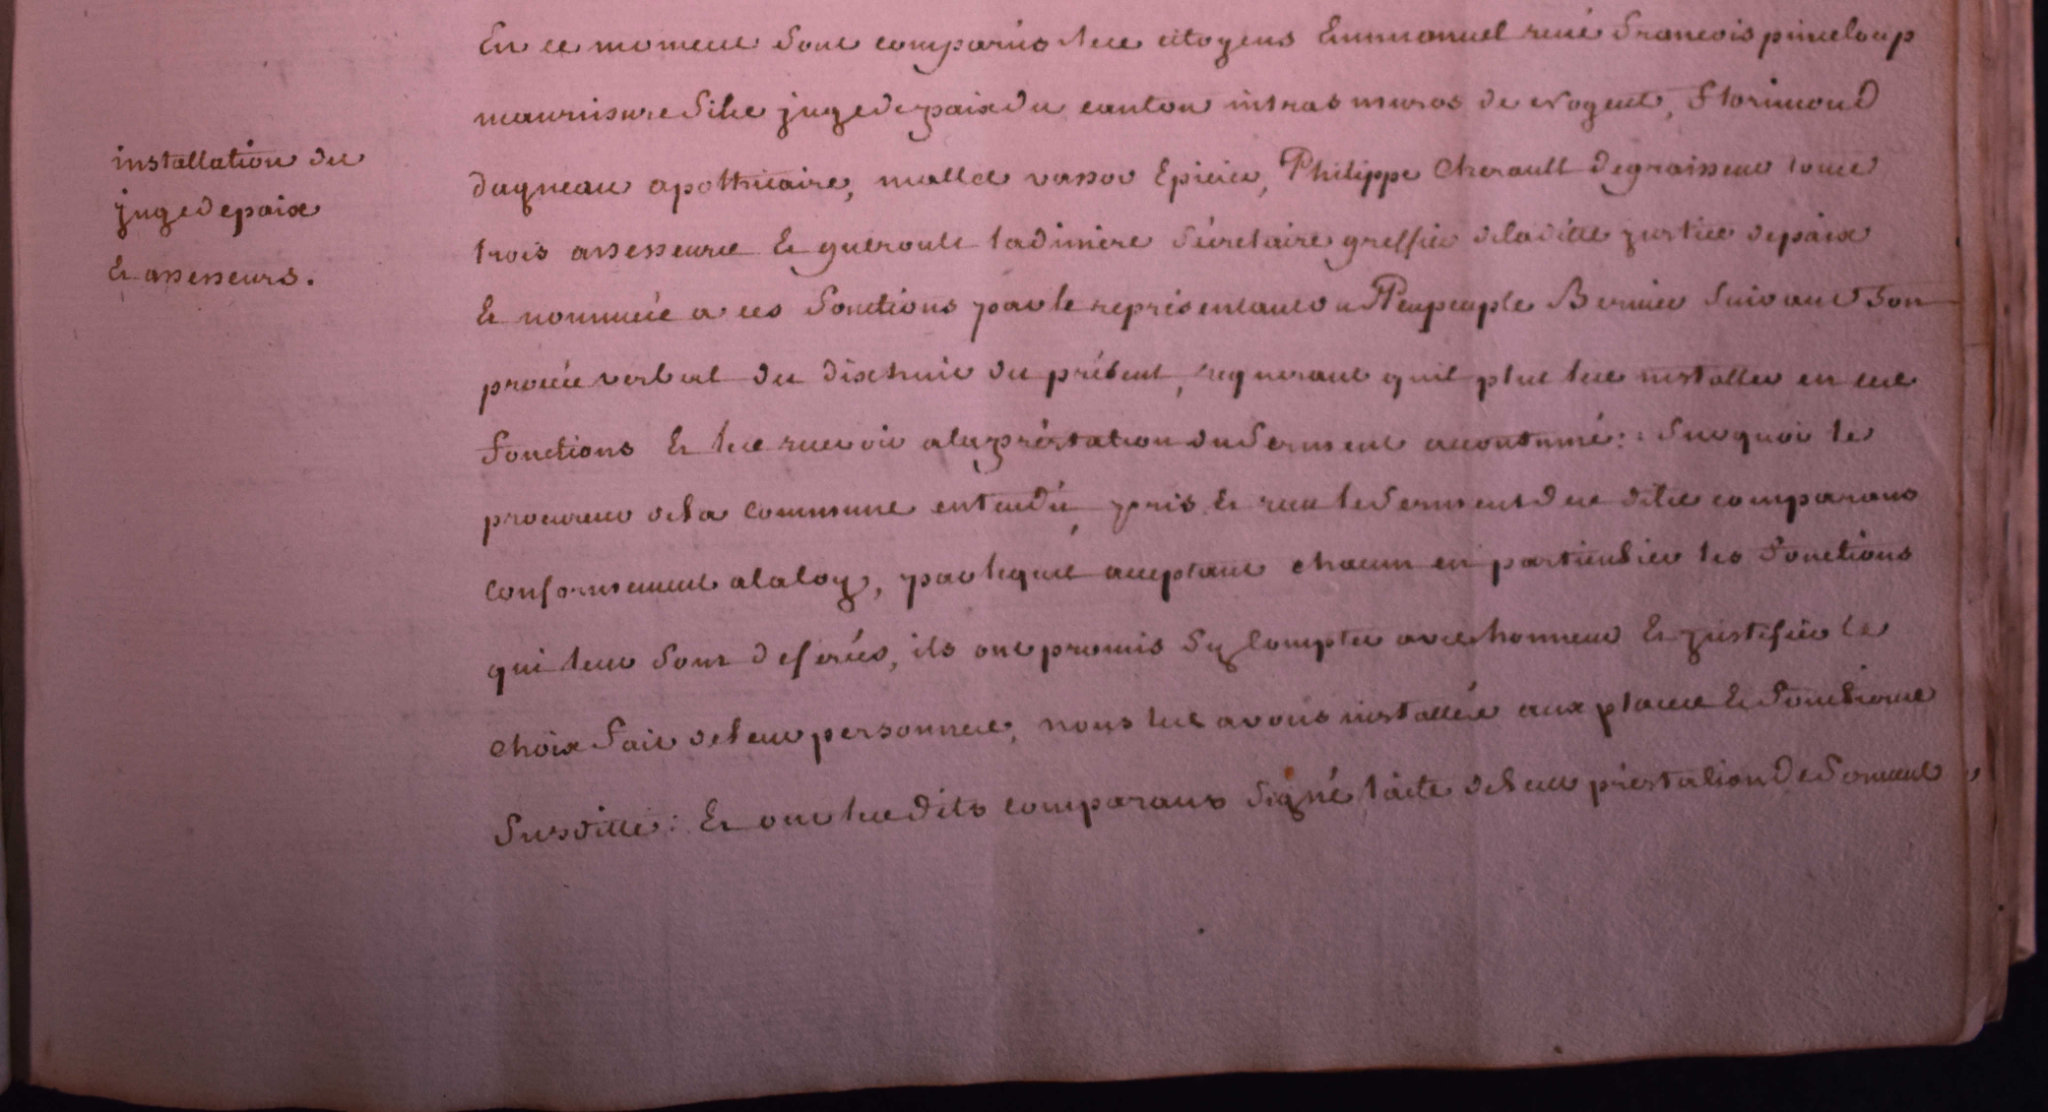 installation du
juge de paix
Et assesseurs.
En ce moment sont comparus les citoyens Emmanuel rené francois pineloup
juge de paix du canton intras muros de Nogent, florimond
dagneau apothicaire, mallet vassor Epicier, Philippe Cherault degraisseur tous
trois assesseurs Et gueroult ladimiere sécretaire greffier de la ditte justice de paix
Et nommés a ces fonctions par le représentant du Peupeuple Bernier suivant son
procés verbal du dixhuit du présent, requerant quil plut les installer en ces
fonctions Et les recevoir a la préstation du serment accoutumé : surquoi le
procureur de la Commune entendu, pris Et recu le serment des dits comparans
Conformement a la loy, par lequel acceptant chacun en particulier les fonctions
qui leur sont deferées, ils ont promis sy Comporter avec honneur Et justifier le
choix fait de leur personnes, nous les avons installés aux places Et fonctions
susdittes : Et ont les dits comparans signé lacte de leur préstation de serment